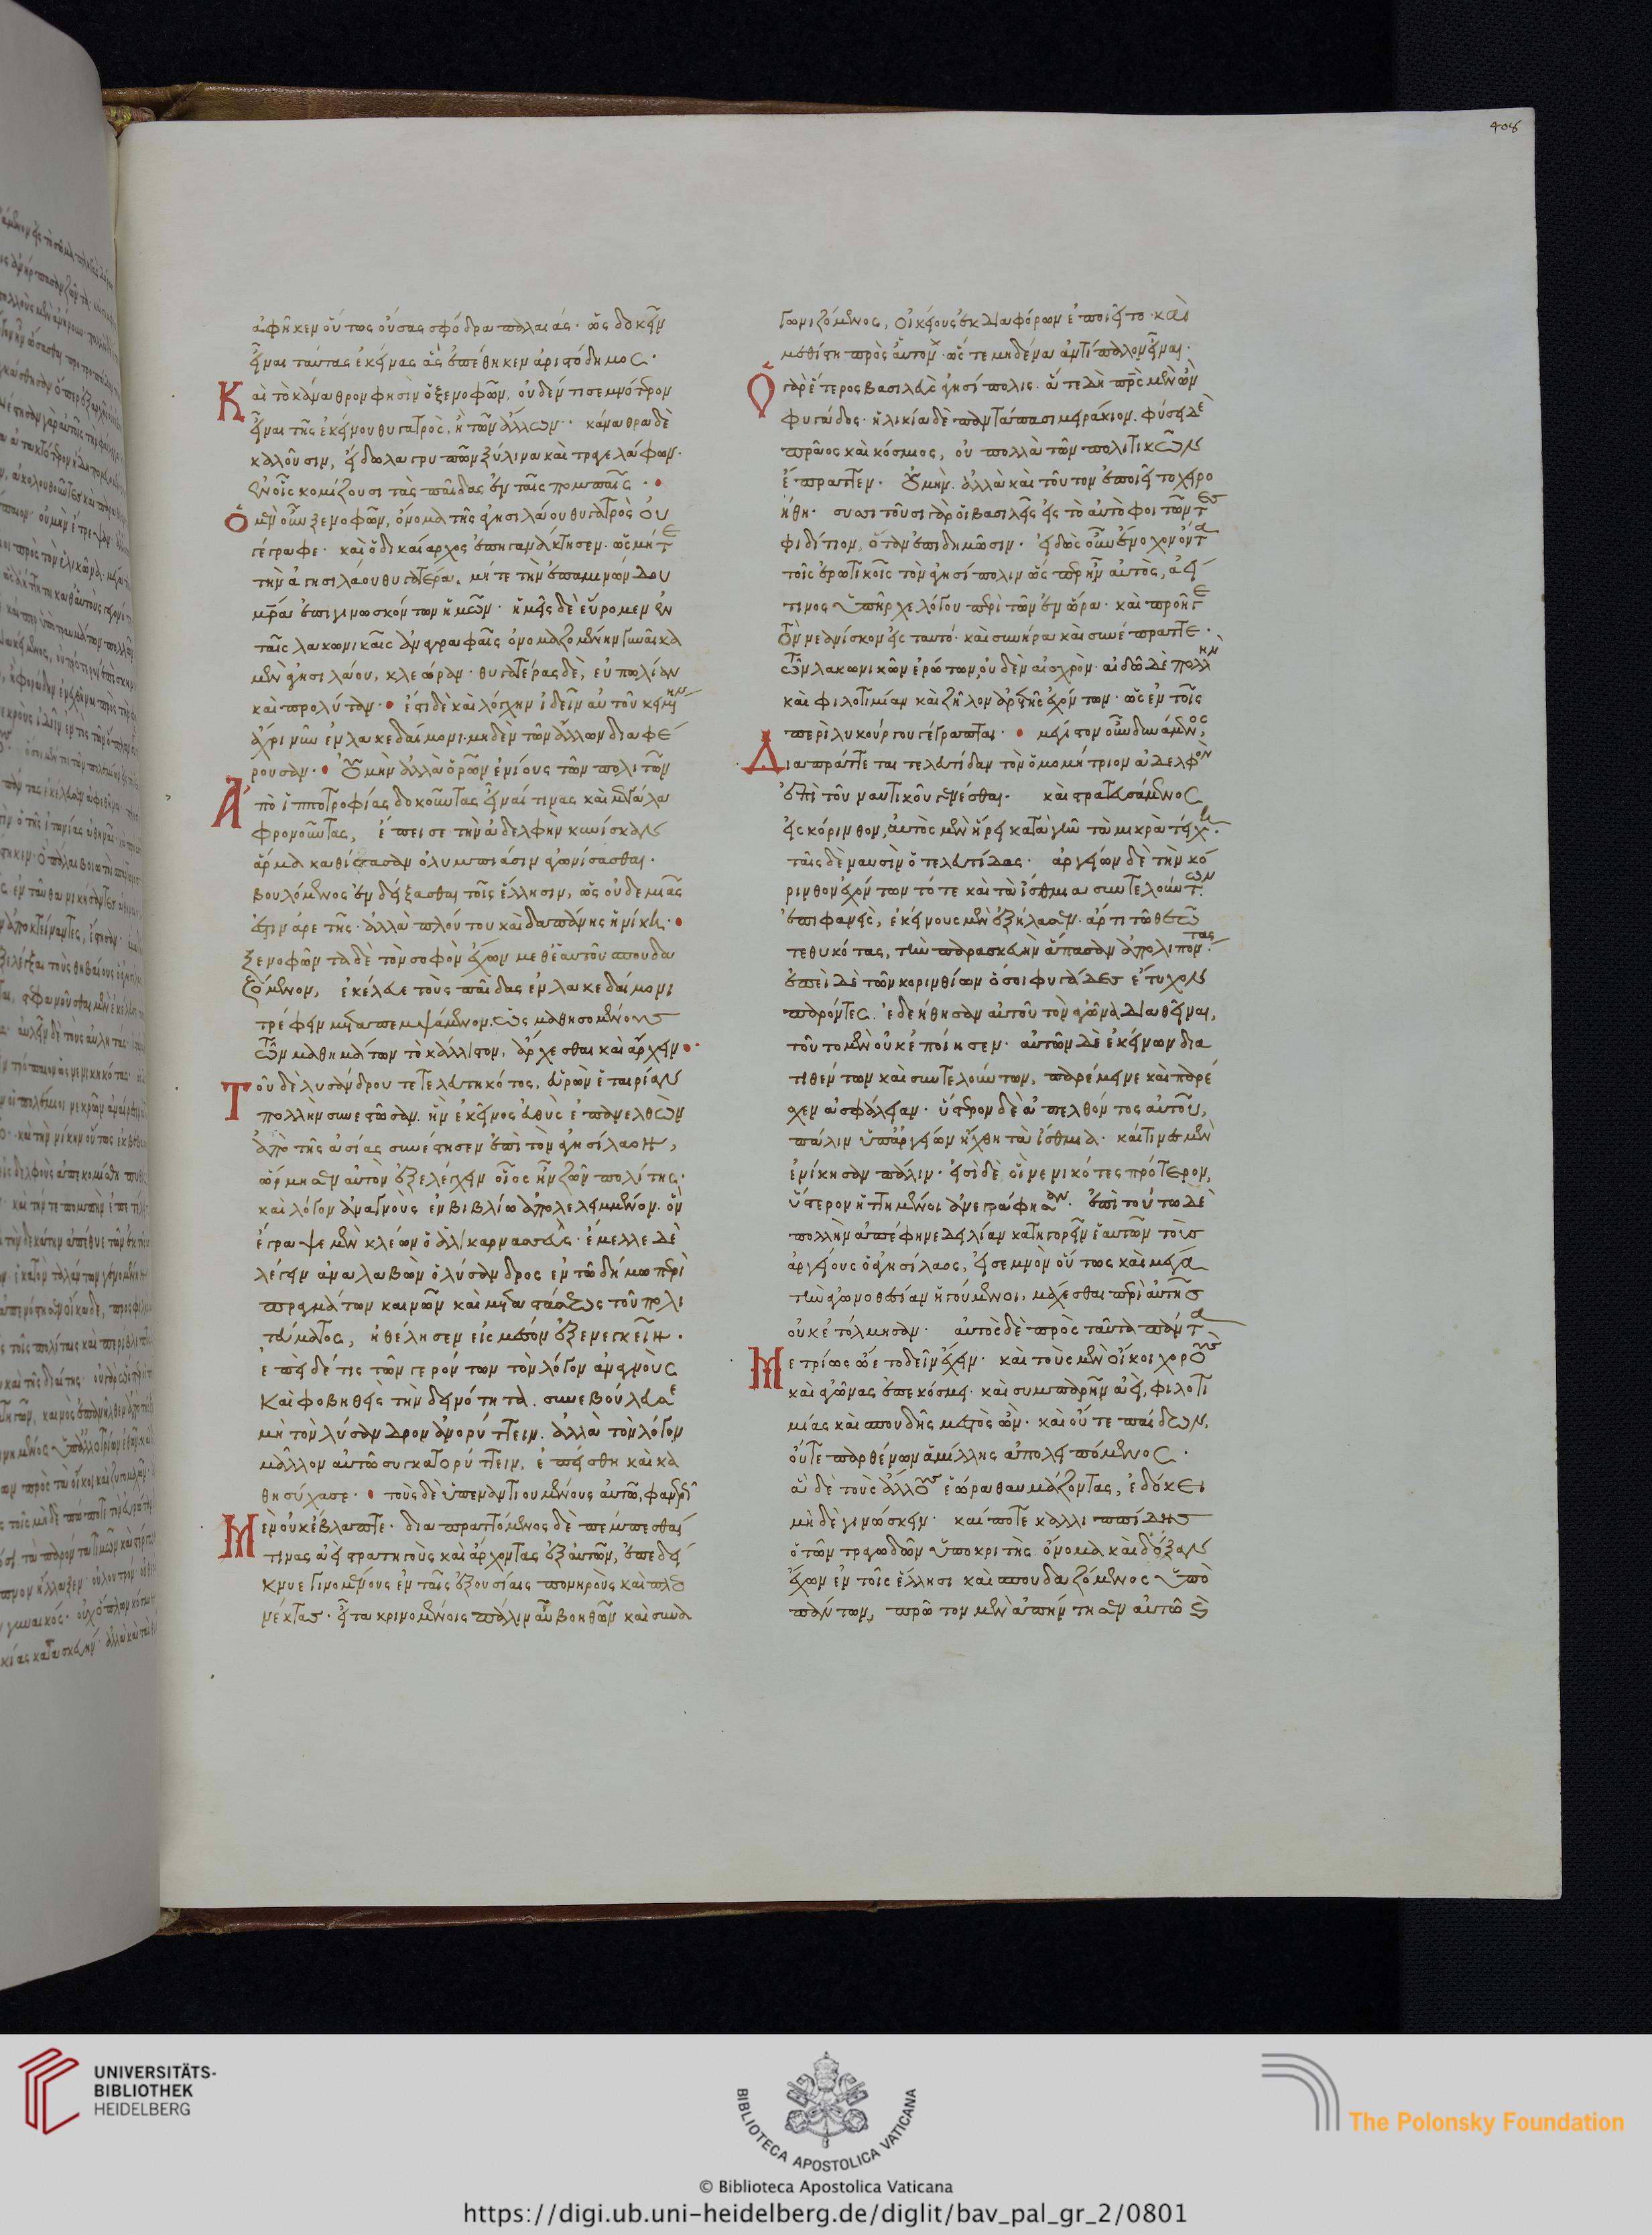 408
ἀφῆκεν οὕτως οὔσας σφόδρα παλαιάς· ὡς δοκεῖν
εἶναι ταύτας ἐκείνας ἃς ἐπέθηκεν ἀριστόδημος·
Καὶ τὸ κάναθρον φησὶν ὁ ξενοφῶν, οὐδέν τι σεμνότερον
εἶναι τῆς ἐκείνου θυγατρὸς, ἢ τῶν ἄλλων· κάναθρα δὲ
καλοῦσιν, εἴδωλα γρυπῶν ξύλινα καὶ τραγελάφων·
ἐν οἷς κομίζουσι τὰς παῖδας ἐν ταῖς πομπαῖς·
Ὁ μὲν οὖν ξενοφῶν, ὄνομα τῆς ἀγησιλάου θυγατρὸς οὐ
γέγραφε· καὶ ὁ δικαίαρχος ἐπηγανάκτησεν. ὡς μήτε
τὴν ἀγησιλάου θυγατέρα, μήτε τὴν ἐπαμινώνδου
μητέρα ἐπιγινωσκόντων ἡμῶν· ἡμεῖς δὲ εὕρομεν ἐν
ταῖς λακωνικαῖς ἀναγραφαῖς ὀνομαζομένην γυναῖκα
μὲν ἀγησιλάου, κλεώραν· θυγατέρας δὲ, εὐπωλίαν
καὶ προλύταν· ἔστι δὲ καὶ λόγχην ἰδεῖν αὐτοῦ κειμένην
ἄχρι νῦν ἐν λακεδαίμονι. μηδὲν τῶν ἄλλων διαφέ
ρουσαν· Οὐ μὴν ἀλλὰ ὁρῶν ἐνίους τῶν πολιτῶν
Ἀπὸ ἱπποτροφίας δοκοῦντας εἶναί τινας καὶ μεγάλα
φρονοῦντας, ἔπεισε τὴν ἀδελφὴν κυνίσκαν
ἅρμα καθίσασαν ὀλυμπιάσιν ἀγωνίσασθαι·
βουλόμενος ἐνδείξασθαι τοῖς ἕλλησιν, ὡς οὐδεμιᾶς
ἐστιν ἀρετῆς· ἀλλὰ πλούτου καὶ δαπάνης ἡ νίκη·
ξενοφῶντα δὲ τὸν σοφὸν ἔχων μεθ' ἑαυτοῦ σπουδα
ζόμενον, ἐκέλευε τοὺς παῖδας ἐν λακεδαίμονι
τρέφειν μεταπεμψάμενον. ὡς μαθησομένους
τῶν μαθημάτων τὸ κάλλιστον, ἄρχεσθαι καὶ ἄρχειν·
Τοῦ δὲ λυσάνδρου τετελευτηκότος, εὑρὼν ἑταιρίαν
πολλὴν συνεστῶσαν. ἣν ἐκεῖνος εὐθὺς ἐπανελθὼν
ἀπὸ τῆς ἀσίας συνέστησεν ἐπὶ τὸν ἀγησίλαον,
ὥρμησεν αὐτὸν ἐξελέγχειν οἷος ἦν ζῶν πολίτης·
καὶ λόγον ἀναγνοὺς ἐν βιβλίω ἀπολελειμμένον. ὃν
ἔγραψε μὲν κλέων ὁ ἁλικαρνασεὺς· ἔμελλε δὲ
λέγειν ἀναλαβὼν ὁ λύσανδρος ἐν τῶ δήμω περὶ
πραγμάτων καινῶν καὶ μεταστάσεως τοῦ πολι
τεύματος, ἠθέλησεν εἰς μέσον ἐξενεγκεῖν·
ἐπεὶ δέ τις τῶν γερόντων τὸν λόγον ἀναγνοὺς
καὶ φοβηθεὶς τὴν δεινότητα. συνεβούλευσε
μὴ τὸν λύσανδρον ἀνορύττειν. ἀλλὰ τὸν λόγον
μᾶλλον αὐτῶ συγκατορύττειν, ἐπείσθη καὶ κα
θησύχασε· τοὺς δὲ ὑπεναντιουμένους αὐτῶ, φανερῶς
Μὲν οὐκ ἔβλαπτε· διαπραττόμενος δὲ πέμπεσθαί
τινας ἀεὶ στρατηγοὺς καὶ ἄρχοντας ἐξ αὐτῶν, ἐπεδεί
κνυε γινομένους ἐν ταῖς ἐξουσίαις πονηροὺς καὶ πλεο
νέκτας· εἶτα κρινομένοις πάλιν αὖ βοηθῶν καὶ συνα
γωνιζόμενος, οἰκείους ἐκ διαφόρων ἐποιεῖτο· καὶ
μεθίστη πρὸς αὐτὸν· ὥστε μηδένα ἀντίπαλον εἶναι·
Ὁ γὰρ ἕτερος βασιλεὺς ἀγησίπολις. ἅτε δὴ πατρὸς μὲν ὢν
φυγάδος· ἡλικία δὲ παντάπασι μειράκιον. φύσει δὲ
πρᾶος καὶ κόσμιος, οὐ πολλὰ τῶν πολιτικῶν
ἔπραττεν· Οὐ μὴν. ἀλλὰ καὶ τοῦτον ἐποιεῖτο χειρο
ήθη· συσσιτοῦσι γὰρ οἱ βασιλεῖς εἰς τὸ αὐτὸ φοιτῶντες
φιδίτιον, ὅταν ἐπιδημῶσιν· εἰδὼς οὖν ἔνοχον ὄντα
τοῖς ἐρωτικοῖς τὸν ἀγησίπολιν ὥσπερ ἦν αὐτὸς, ἀεί
τινος ὑπῆρχε λόγου περὶ τῶν ἐν ὥρα· καὶ προῆγε
τὸν νεανίσκον εἰς ταυτό· καὶ συνήρα καὶ συνέπραττε·
τῶν λακωνικῶν ἐρώτων, οὐδὲν αἰσχρὸν· αἰδῶ δὲ πολλὴν
καὶ φιλοτιμίαν καὶ ζῆλον ἀρετῆς ἐχόντων· ὡς ἐν τοῖς
περὶ λυκούργου γέγραπται· μέγιστον οὖν δυνάμενος,
Διαπράττεται τελευτίαν τὸν ὁμομήτριον ἀδελφὸν
ἐπὶ τοῦ ναυτικοῦ γενέσθαι· καὶ στρατευσάμενος
εἰς κόρινθον, αὐτὸς μὲν ἥρει κατὰ γῆν τὰ μακρὰ τείχη·
ταῖς δὲ ναυσὶν ὁ τελευτίας· ἀργείων δὲ τὴν κό
ρινθον ἐχόντων τότε καὶ τὰ ἴσθμια συντελούντων.
ἐπιφανεὶς, ἐκείνους μὲν ἐξήλασεν. ἄρτι τῶ θεῶ
τεθυκότας, τὴν παρασκευὴν ἅπασαν ἀπολιπόντας·
ἐπεὶ δὲ τῶν κορινθίων ὅσοι φυγάδες ἔτυχον
παρόντες. ἐδεήθησαν αὐτοῦ τὸν ἀγῶνα διαθεῖναι,
τοῦτο μὲν οὐκ ἐποίησεν· αὐτῶν δὲ ἐκείνων δια
τιθέντων καὶ συντελούντων, παρέμεινε καὶ παρέ
σχεν ἀσφάλειαν· ὕστερον δὲ ἀπελθόντος αὐτοῦ,
πάλιν ὑπ' ἀργείων ἤχθη τὰ ἴσθμια· καί τινες μὲν
ἐνίκησαν πάλιν· εἰσὶ δὲ οἳ νενικότες πρότερον,
ὕστερον ἡττημένοι ἀνεγράφησαν· ἐπὶ τούτω δὲ
πολλὴν ἀπέφηνε δειλίαν κατηγορεῖν ἑαυτῶν τοὺς
ἀργείους ὁ ἀγησίλαος, εἰ σεμνὸν οὕτως καὶ μέγα
τὴν ἀγωνοθεσίαν ἡγούμενοι, μάχεσθαι περὶ αὐτῆς
οὐκ ἐτόλμησαν· αὐτὸς δὲ πρὸς ταῦτα πάντα
Μετρίως ὤετο δεῖν ἔχειν· καὶ τοὺς μὲν οἴκοι χοροὺς
καὶ ἀγῶνας ἐπεκόσμει· καὶ συμπαρῆν ἀεὶ, φιλοτι
μίας καὶ σπουδῆς μεστὸς ὢν· καὶ οὔτε παίδων,
οὔτε παρθένων ἁμίλλης ἀπολειπόμενος·
ἃ δὲ τοὺς ἄλλους ἑώρα θαυμάζοντας, ἐδόκει
μὴ δὲ γινώσκειν· καί ποτε καλλιππίδης
ὁ τῶν τραγωδῶν ὑποκριτὴς. ὄνομα καὶ δόξαν
ἔχων ἐν τοῖς ἕλλησι καὶ σπουδαζόμενος ὑπὸ
πάντων, πρῶτον μὲν ἀπήντησεν αὐτῶ καὶ
UNIVERSITÄTS-
BIBLIOTHEK
HEIDELBERG
BIBLIOTECA APOSTOLICA VATICANA
The Polonsky Foundation
© Biblioteca Apostolica Vaticana
https://digi.ub.uni-heidelberg.de/diglit/bav_pal_gr_2/0801